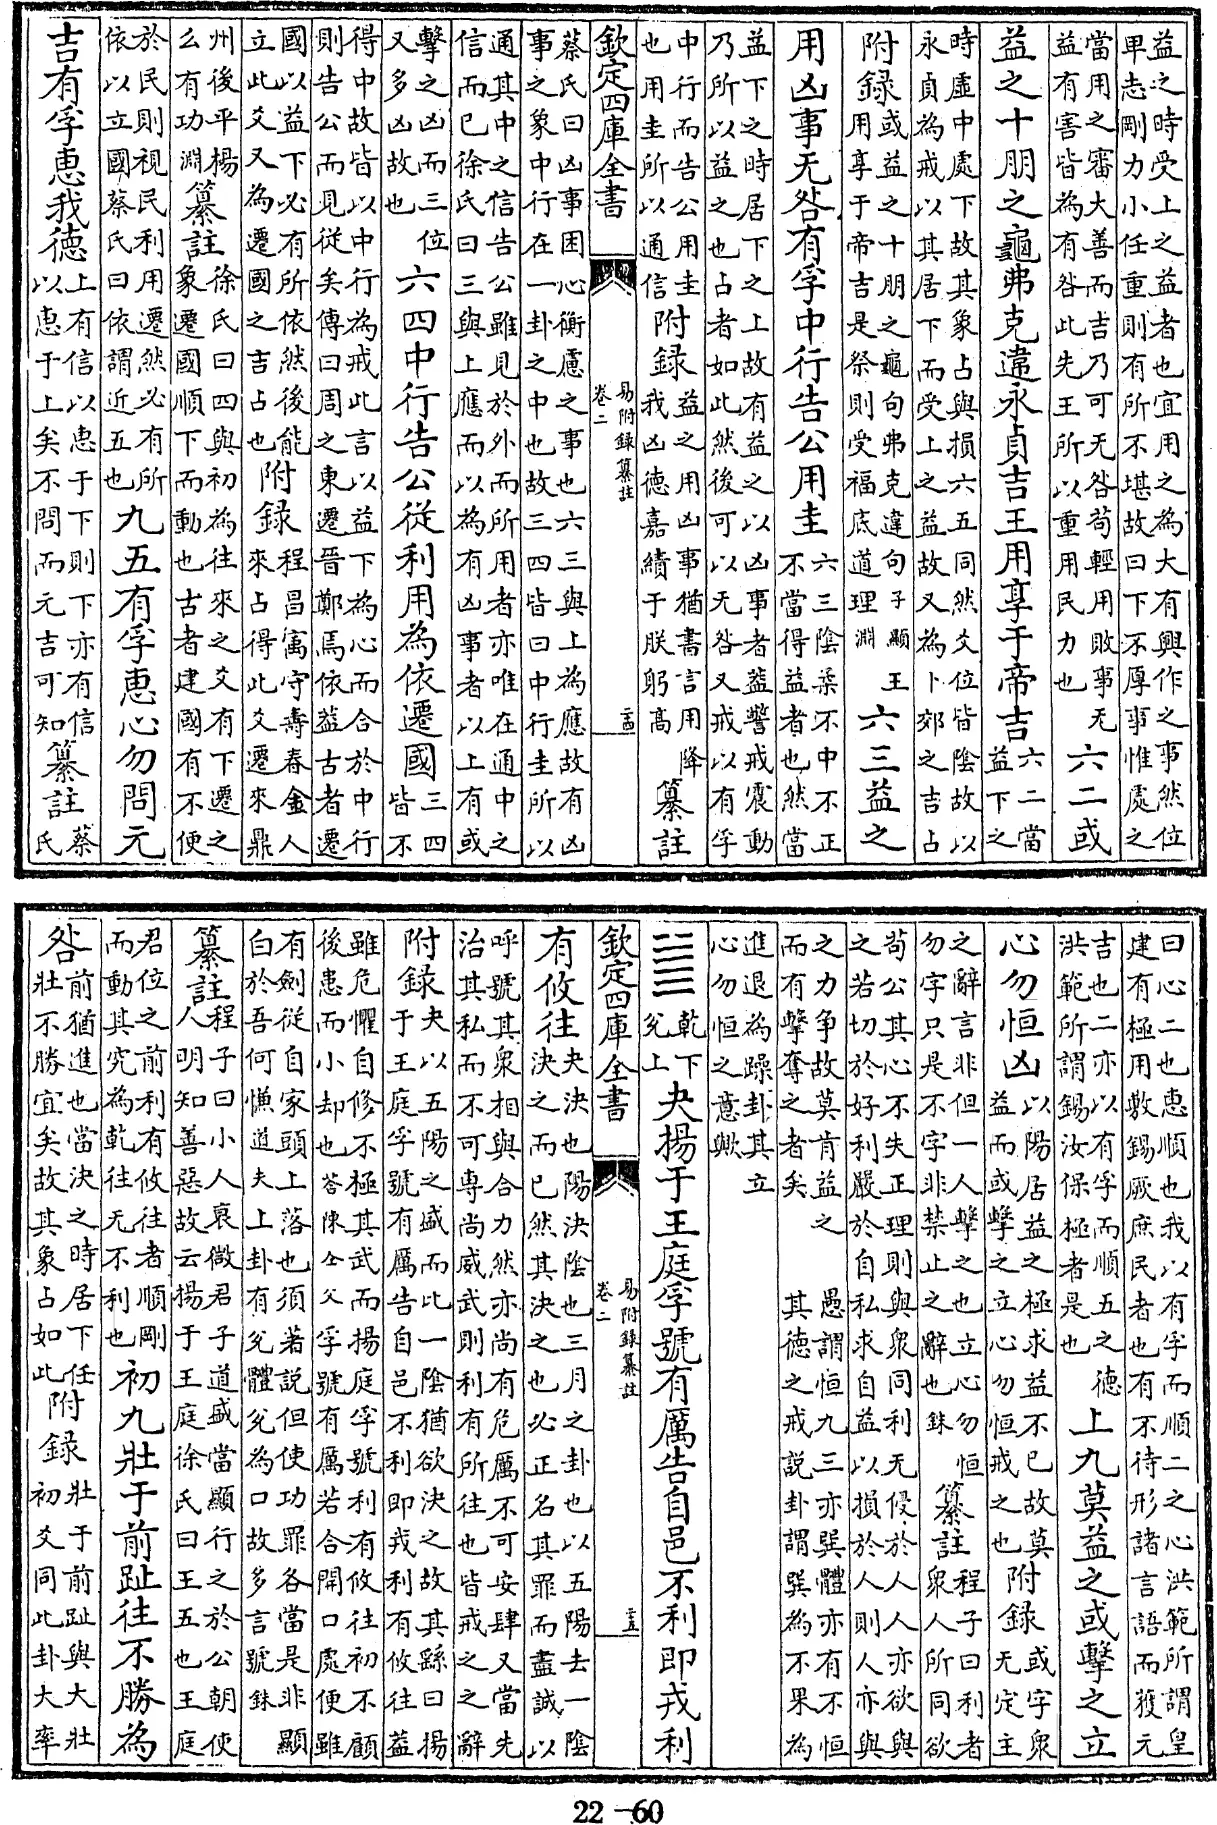 益之時受上之益者也宜用之為大有興作之事然位
卑志剛力小任重則有所不堪故曰下不厚事惟處之
當用之審大善而吉乃可无咎苟輕用敗事无
益有害皆為有咎此先王所以重用民力也
六二或
益之十朋之龜弗克違永貞吉王用享于帝吉
六二當
益下之
時虛中處下故其象占與損六五同然爻位皆陰故以
永貞為戒以其居下而受上之益故又為卜郊之吉占
附錄
或益之十朋之龜句弗克違句子顯王
用享于帝吉是祭則受福底道理淵
六三益之
用凶事无咎有孚中行告公用圭
六三陰柔不中不正
不當得益者也然當
益下之時居下之上故有益之以凶事者蓋警戒震動
乃所以益之也占者如此然後可以无咎又戒以有孚
中行而告公用圭
也用圭所以通信
附錄
益之用凶事猶書言用降
我凶德嘉績于朕躬高
纂註
欽定四庫全書
易附錄纂註
卷二
二十四
蔡氏曰凶事困心衡慮之事也六三與上為應故有凶
事之象中行在一卦之中也故三四皆曰中行圭所以
通其中之信告公雖見於外而所用者亦唯在通中之
信而已徐氏曰三與上應而以為有凶事者以上有或
擊之凶而三位
又多凶故也
六四中行告公從利用為依遷國
三四
皆不
得中故皆以中行為戒此言以益下為心而合於中行
則告公而見從矣傳曰周之東遷晉鄭焉依蓋古者遷
國以益下必有所依然後能
立此爻又為遷國之吉占也
附錄
程昌寓守壽春金人
來占得此爻遷來鼎
州後平楊
么有功淵
纂註
徐氏曰四與初為往來之爻有下遷之
象遷國順下而動也古者建國有不便
於民則視民利用遷然必有所
依以立國蔡氏曰依謂近五也
九五有孚惠心勿問元
吉有孚惠我德
上有信以惠于下則下亦有信
以惠于上矣不問而元吉可知
纂註
蔡
氏
曰心二也惠順也我以有孚而順二之心洪範所謂皇
建有極用敷錫厥庶民者也有不待形諸言語而獲元
吉也二亦以有孚而順五之德
洪範所謂錫汝保極者是也
上九莫益之或擊之立
心勿恒凶
以陽居益之極求益不已故莫
益而或擊之立心勿恒戒之也
附錄
或字眾
无定主
之辭言非但一人擊之也立心勿恒
勿字只是不字非禁止之辭也銖
纂註
程子曰利者
眾人所同欲
苟公其心不失正理則與眾同利无侵於人人亦欲與
之若切於好利嚴於自私求自益以損於人則人亦與
之力爭故莫肯益之
而有擊奪之者矣
愚謂恒九三亦巽體亦有不恒
其德之戒說卦謂巽為不果為
進退為躁卦其立
心勿恒之意歟
䷪
乾下
兌上
夬揚于王庭孚號有厲告自邑不利即戎利
欽定四庫全書
易附錄纂註
卷二
二十五
有攸往
夬決也陽決陰也三月之卦也以五陽去一陰
決之而已然其決之也必正名其罪而盡誠以
呼號其眾相與合力然亦尚有危厲不可安肆又當先
治其私而不可專尚威武則利有所往也皆戒之之辭
附錄
夬以五陽之盛而比一陰猶欲決之故其繇曰揚
于王庭孚號有厲告自邑不利即戎利有攸往蓋
雖危懼自修不極其武而揚庭孚號利有攸往初不顧
後患而小却也答陳仝父孚號有厲若合開口處便雖
有劍從自家頭上落也須著說但使功罪各當是非顯
白於吾何慊道夫上卦有兌體兌為口故多言號銖
纂註
程子曰小人衰微君子道盛當顯行之於公朝使
人明知善惡故云揚于王庭徐氏曰王五也王庭
君位之前利有攸往者順剛
而動其究為乾往无不利也
初九壯于前趾往不勝為
咎
前猶進也當決之時居下任
壯不勝宜矣故其象占如此
附錄
壯于前趾與大壯
初爻同此卦大率
22-60